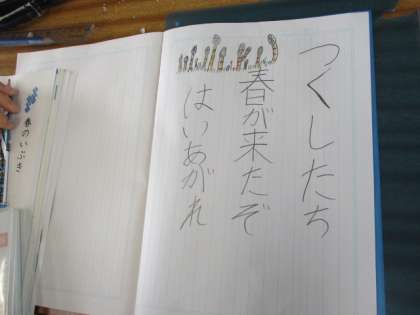 つくしたち
春が来たぞ
はいあがれ
春のいぶき